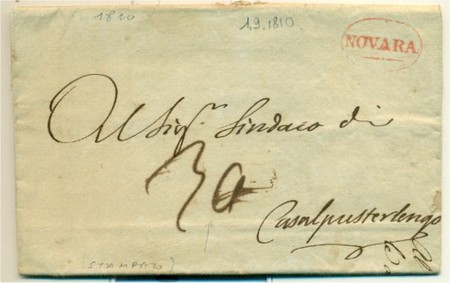 1810
1.9.1810
NOVARA
Al Sigr. Sindaco di
3a
Casalpusterlengo
(STAMPATO)